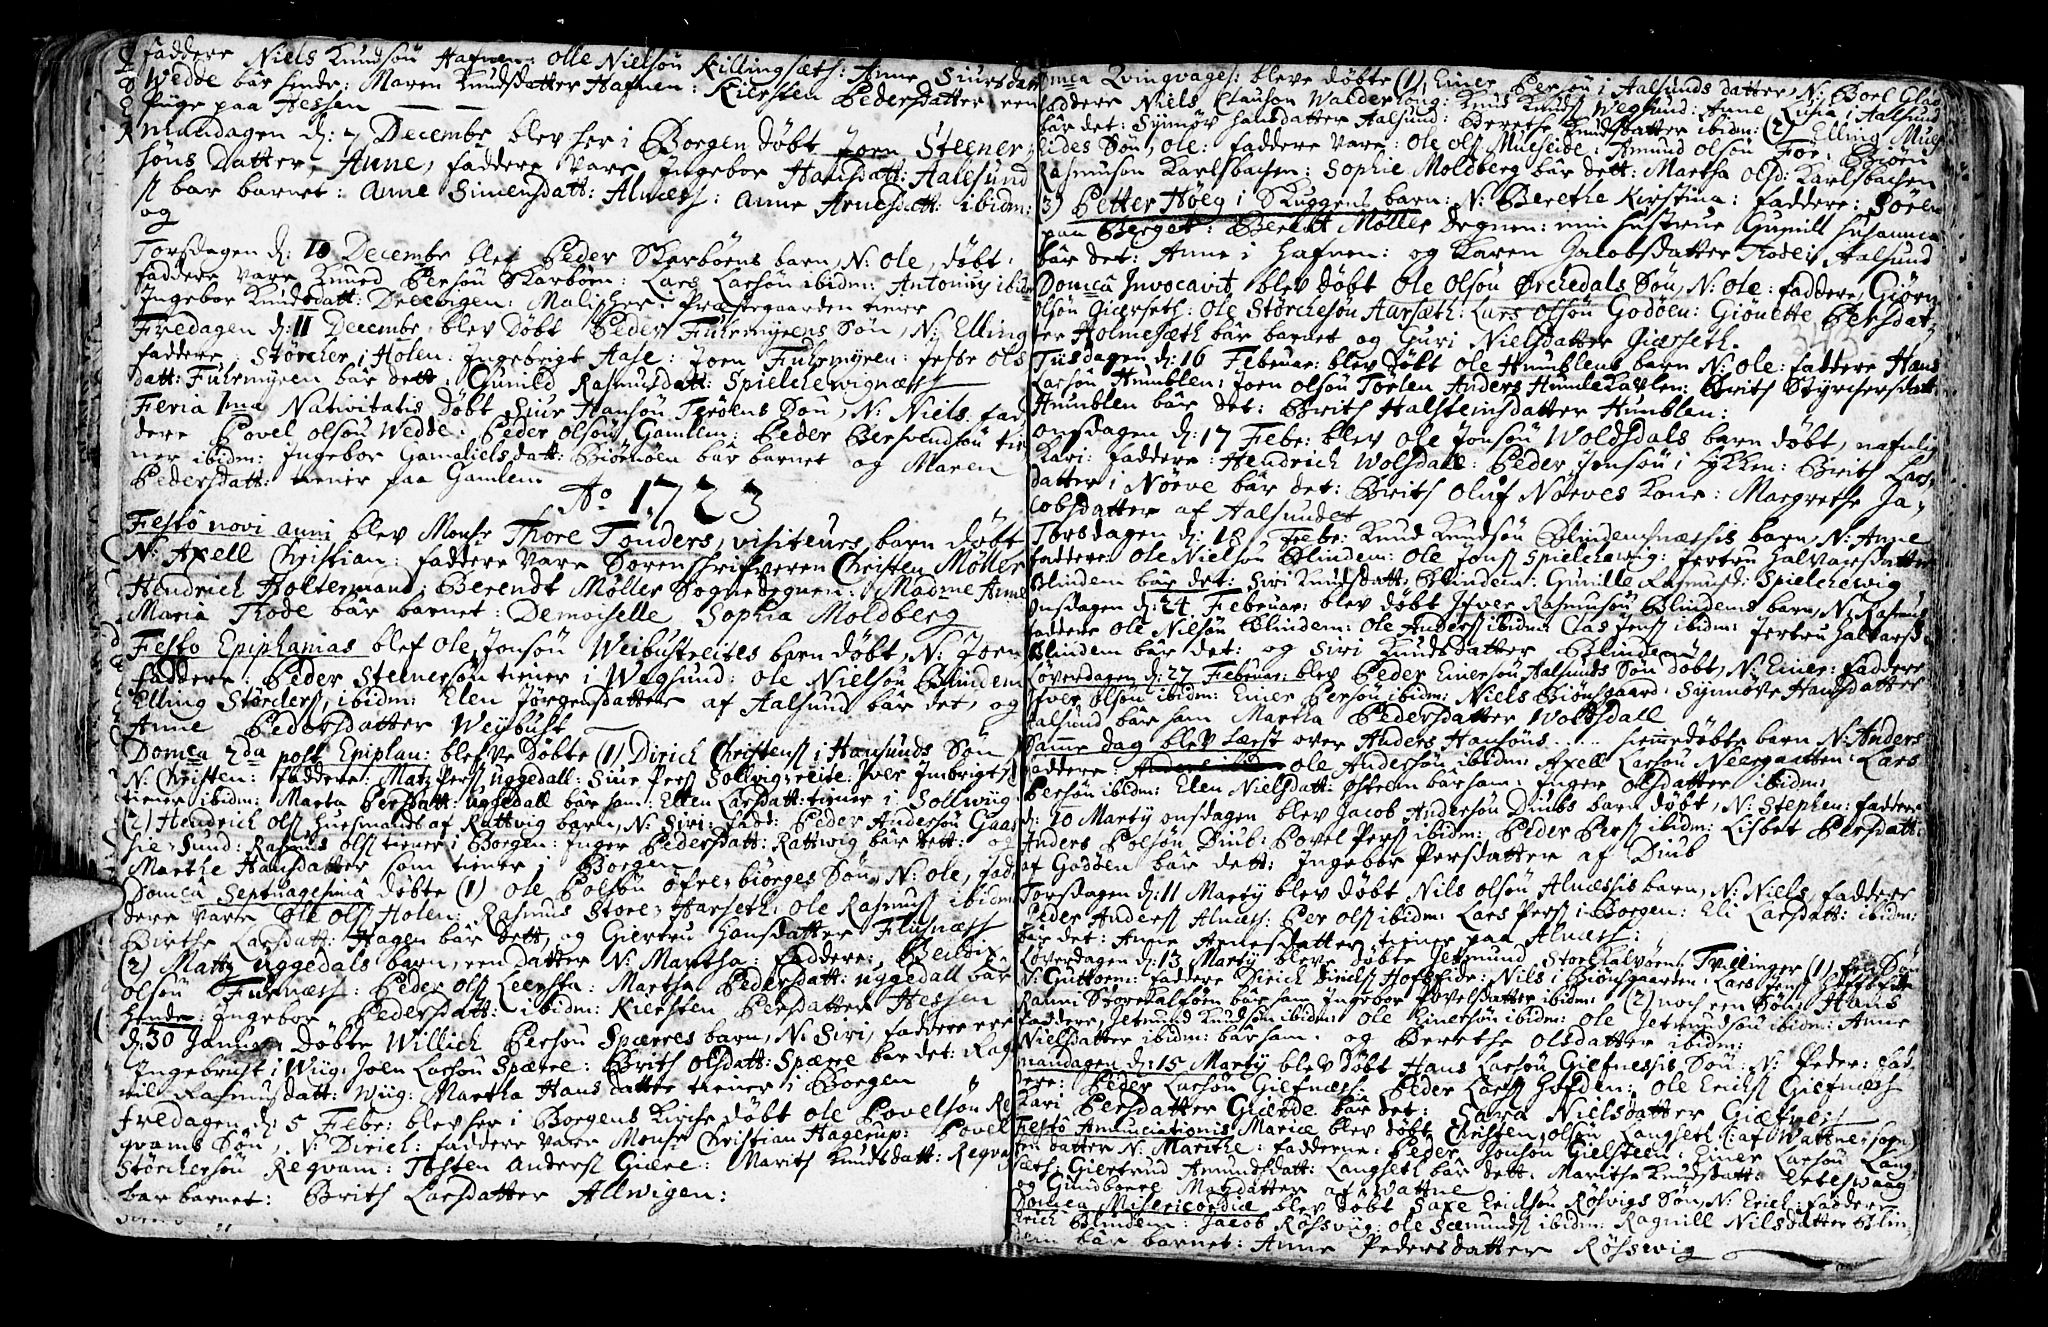 faddere Niels Knudsøn Hafnen: Olle Nielsøn Killingsæth: Anne Siursdatt
Wedde bar hende: Maren Knudsdatter Hafnen: Kiersten Pedersdatter een
Pige paa Hessen
Mandagen d: 7 Decembr blev her i Borgen døbt Joen Steener
søns Datter, Anne, faddere vare Ingebor Hansdatt: Aalesund
bar barnet: Anne Simensdatt: Alnæss: Anne Arnesdatt: ibidm:
og
Torsdagen d: 10 Decembr blef Peder Skarbøens barn, N: Ole, døbt:
faddere vare Knud Persøn Skarbøen: Lars Larsøn ibidm: Antonny ibidm
Ingebor Knudsdatt: i Præstegaarden tiener
Fredagen d: 11 Decembr blev døbt Peder Fuhrmyrens Søn, N: Elling
faddere Størcher i Holen: Ingebrigt Aase: Joen Fuhrmyren: Ols
datt: Fuhrmyren bar dett: Gunild Rasmusdatt: Spielchewignæss
Feria 1ma Nativitatis døbt Siur Hansøn Søn, N: Niels, fad
dere Povel Olsøn Wedde: Peder Olsøn Gamlem: Peder tie
ner ibidm: Ingebor Gamalielsdatt: Biørnøen bar barnet og Maren
Pedersdatt: tiener paa Gamlem
Ao 1723
Festo novi anni blev Monsr Thore Tønders, visiteurs barn døbt
N: Axell Christian: faddere vare Sorenschrifveren Christen Møller
Hendrich Holtermand: Berendt Møller Sognedegnen: Madme Anne
Maria Thode bar barnet: Demoiselle Sophia Moldberg
Festo Epiphanias blef Ole Jonsøn Weibustreites barn døbt, N: Joen
faddere: Peder Steenersøn tiener i Wegsund: Ole Nielsøn Blindem
Elling Størchers: ibidm: Elen Jørgensdatter af Aalsund bar det, og
Anne Pedersdatter Weybust
Domca 2da post Epiphan: blefve døbte (1) Dirich Christens i Hansunds Søn
N: Christen: faddere: Matz Pers uggedall: Siur Pers Solvigreite: Iver Imbrigts
tiener ibidm: Marta Persdatt: uggedall bar ham: Ellen Larsdatt: tiener i Sollwiig
(2) Hendrich Ols huusmands af Rattvig barn, N: Siri: fadd: Peder Andersøn Gaas
Sund: Rasmus Ols tiener i Borgen: Inger Pedersdatt: Rattwig bar dett: og
Marthe Hansdatter som tiener i Borgen
Domca Septuagesima døbte (1) Ole Polsøn øfrebiørges Søn, N: Ole, fad
dere vare Ole Ols Holen: Rasmus Store Harseth: Ole Rasmus ibidm
Birthe Larsdatt: Hagen bar dett, og Giertru Hansdatter Flisnæss
(2) Matz uggedals barn, een datter N: Martha: faddere: Bendix
olsøn Furnæss: Peder Ols Leersta: Martha Pedersdatt: uggedall bar
hende: Ingebor Pedersdatt: ibidm: Kiersten Persdatter Hessen
d: 30 Januar døbte Willich Persøn Spærres barn, N: Siri, faddere ere
Ingebricht i Wiig: Joen Larsøn Spærre: Brith Olsdatt: Spærre bar det: Rag
nil Rasmusdatt: Wiig: Martha Hansdatter tiener i Borgen
fredagen d: 5 Febr: blev her i Borgens Kirche døbt Ole Povelsøn Re
grams Søn, N: Dirich: faddere vare Monsr Christian Hagerup: Povel
Størchersøn Regvam: Tosten Anders Giære: Marith Knudsdatt: Regva
bar barnet: Brith Larsdatter Allwigen:
Domca Qvinqvages: bleve døbte (1) Einer Persøn i Aalsunds datter, N: Boel
faddere Niels Clauson Walderhoug: Knud Knuds Wegsund: Anne Lucia i Aalsund
bar det: Synnøv Hansdatter Aalsund: Berethe Knudsdatter ibidm: (2) Elling Muls
eides Søn, Ole: faddere vare: Ole Ols Mulseide: Amund Olsøn Foe: Biørn
Rasmusøn Karlsbachen: Sophie Moldberg bar dett: Martha Olsd: Karlsbachen
3) Petter Høeg i Skuggens barn: N: Berethe Kirstina: faddere: Søren
paa Berget: Berendt Møller Degnen: min hustrue Gunill Susanna
bar det: Anne i Hafnen: og Karen Jacobsdatter Thode i Aalsund
Domca Invocavit blev døbt Ole Olsøn Ørchedals Søn, N: Ole: faddere, Giørn
Olsøn Giærseth: Ole Størchesøn Aarsæth: Lars Olsøn Godøen: Giøuette Persdat
ter Holmesæth bar barnet og Guri Nielsdatter Giærseth.
343
Tiisdagen d: 16 Februar: blev døbt Ole Humblens barn N: Ole: faddere Hans
Larsøn Humblen: Joen Olsøn Toelen Anders Humlekavlen: Brith Styrchersdatt
Humblen bar det: Brith Halsteinsdatter Humblen:
onsdagen d: 17 Febr: blev Ole Jonsøn Woldsdals barn døbt, nafnlig
Kari: faddere: Hendrich Wolsdall: Peder Jonsøn i Hykken: Brith Lars
datter i Nørve bar det: Brith Oluf Nørves Kone: Margrethe Ja
cobsdatter af Aalsundet
Torsdagen d: 18 Febr: Knud Knudsøn Blindemsnæssis barn, N: Anne
faddere Ole Nielsøn Blindem: Ole Jons Spielchewig: Jertru Halvarsdatter
Blindem bar det: Siri Knudsdatt: Blindem: Gunille Rasmusd: Spielchewig
onsdagen d: 24 Februar: blev døbt Ifver Rasmusøn Blindems barn, N: Rasmus
faddere Ole Nilsøn Blindem: Ole Anders ibidm: Clas Jens ibidm: Jertru Halvarsd:
Blindem bar det: og Siri Knudsdatter Blindem
Løverdagen d: 27 Februar: blev Peder Einersøn Aalsunds Søn døbt, N: Einer: faddere
Ifver Olsøn ibidm: Einer Persøn ibidm: Niels Biønsgaard: Synnøve Hansdatter
Aalsund bar ham Martha Pedersdatter Woldsdall
Samme dag blev Læst over Anders Hansøns .... hiemmedøbte barn N: Anders
faddere: Ole Andersøn ibidm: Axell Larsøn Neergaarten: Lars
Persøn ibidm: Elen Nielsdatt: Østrem bar ham: Inger Olsdatter ibidm:
d: 10 Marty onsdagen blev Jacob Andersøn Diubs barn døbt, N: Stephen: faddere
Anders Polsøn Diub: Povel Pers ibidm: Peder Pers ibidm: Lisbet Persdatt:
af Godøen bar dett: Ingebor Persdatter af Diub
Torsdagen d: 11 Marty blev døbt Nils Olsøn Alnæssis barn, N: Niels, faddere
Peder Anders Alnæss: Per Ols ibidm: Lars Pers i Borgen: Eli Larsdatt: ibidm:
bar det: Anne Arnesdatter tiener paa Alnæss:
Løverdagen d: 13 Marty bleve døbte Jetmund Storkalvøens Tvillinger (1) Een Søn
N: Guttorm: faddere Dirich Dirichs Hofside: Nils i Biønsgaarden: Lars Jens Hofsside
Karen Storekalføen bar ham Ingebor Povelsdatter ibidm: (2) noch een Søn: Hans
faddere, Jetmund Knudsøn ibidm: Ole Einersøn ibidm: Ole Jetmundsøn ibidm: Anne
Nielsdatter ibidm: bar ham: og Berethe Olsdatter ibidm:
Mandagen d: 15 Marty blev døbt Hans Larsøn Giefnessis Søn: N: Peder: fad
dere: Peder Larsøn Giefnæss: Peder Lars Hofden: Ole Erichs Giefnæss
Kari Persdatter Giærde bar det: Sara Nielsdatter
Festo Annuciationis Mariæ blev døbt Christen Olsøn Langseth af Wattne sogn
een datter N: Marithe: fadderne: Peder Jonsøn Gielsteen: Einer Larsøn Lang
sæth: Giertrud Amundsdatt: Langseth bar dett: Marithe Knudsdatt:
og Gundborre Matzdatter af Wattne
Domca Misericordiæ blev døbt Saxe Erichsøn Røsvigs Søn, N: Erich: faddere
Erich Blindem: Jacob Røssviig: Ole Sæmunds ibidm: Ragnill Nilsdatter Blin
dem bar barnet: Anne Pedersdatter Røsswig